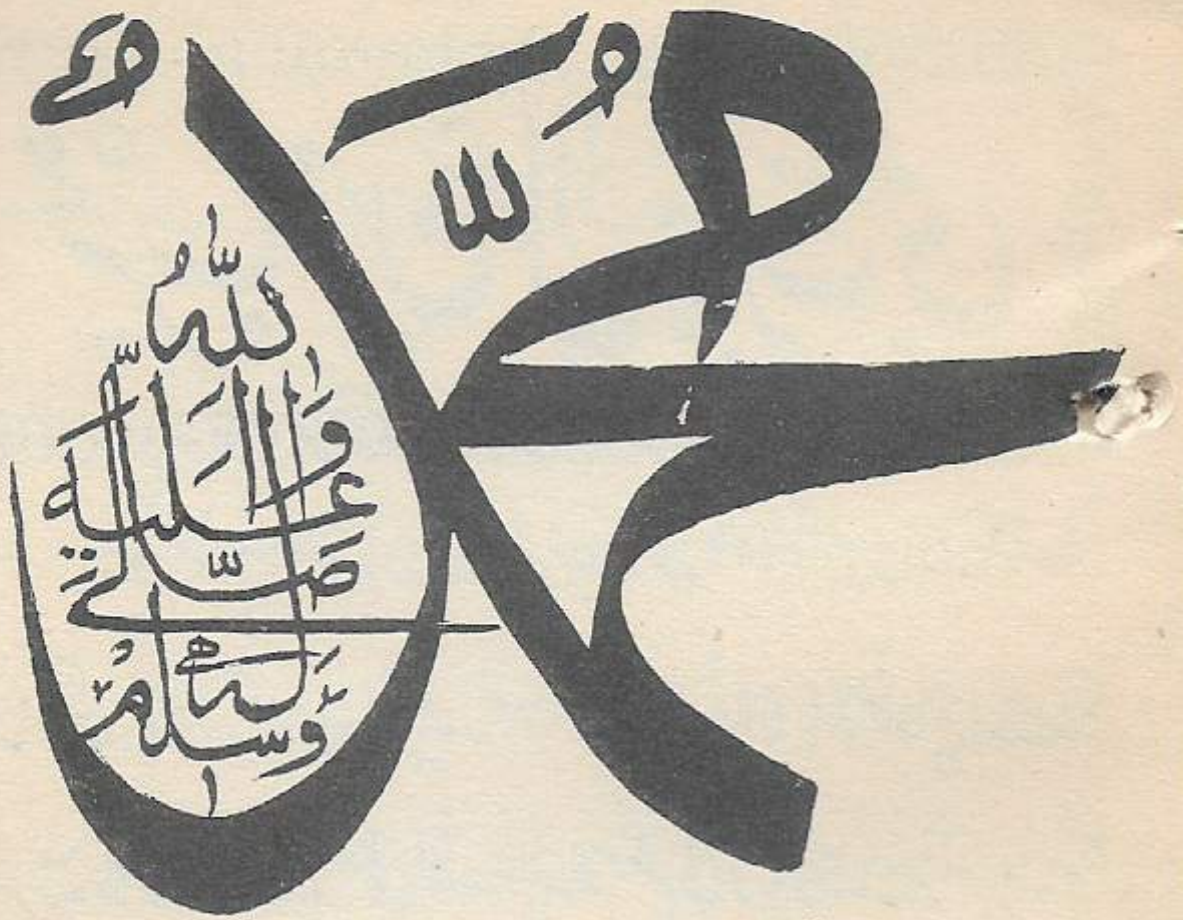 مُحَمَّدٌ
صَلَّى اللّٰهُ عَلَيْهِ وَاٰلِهٖ وَسَلَّمْ